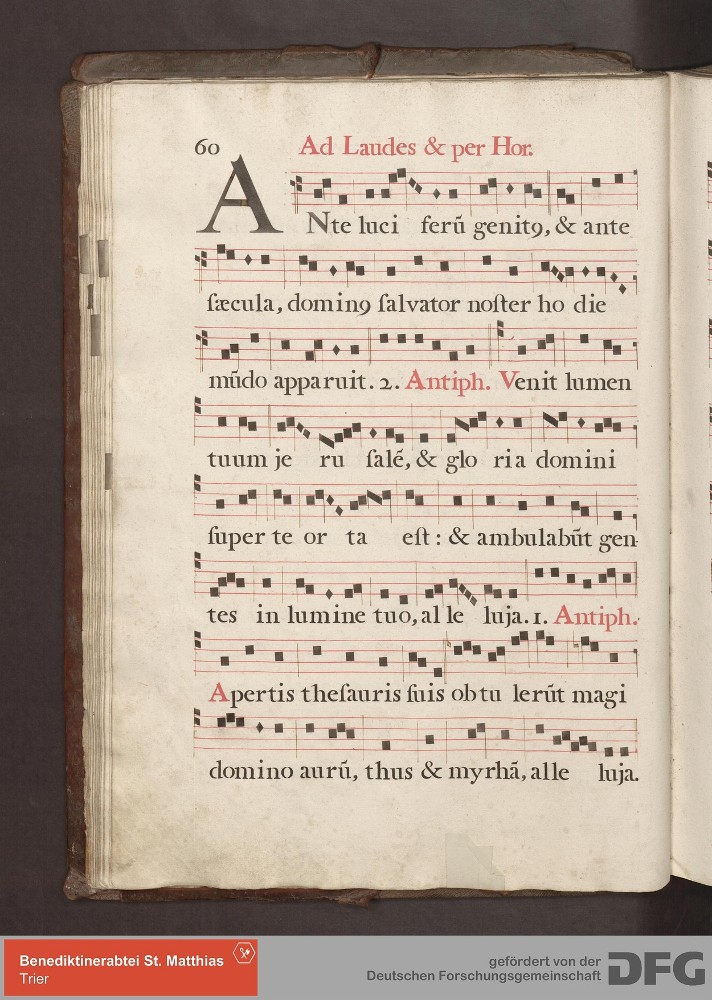 60 Ad Laudes & per Hor.
ANte luci ferū genitꝯ, & ante
ſæcula, dominꝯ ſalvator noſter ho die
mūdo apparuit. 2. Antiph. Venit lumen
tuum je ru ſalē, & glo ria domini
ſuper te or ta eſt : & ambulabūt gen-
tes in lumine tuo, al le luja. 1. Antiph.
Apertis theſauris ſuis obtu lerūt magi
domino aurū, thus & myrhā, alle luja.
Benediktinerabtei St. Matthias
Trier
gefördert von der
Deutschen Forschungsgemeinschaft
DFG